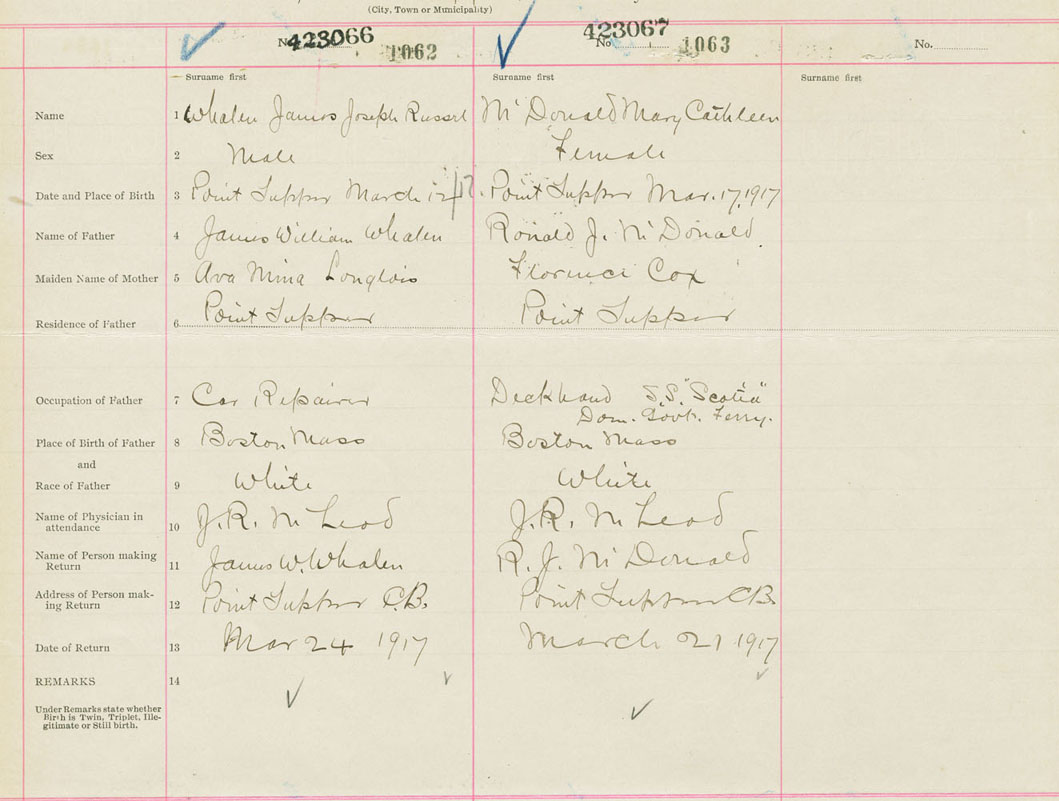 (City, Town or Municipality)
No. 423066 1062 No 423067 1063 No.
Surname first Surname first Surname first
Name 1 Whalen James Joseph Russel McDonald Mary Cathleen
Sex 2 Male Female
Date and Place of Birth 3 Point Tupper March 12/17. Point Tupper Mar. 17, 1917
Name of Father 4 James William Whalen Ronald J. McDonald
Maiden Name of Mother 5 Ava Mina Longlois Florence Cox
Residence of Father 6 Point Tupper Point Tupper
Occupation of Father 7 Car Repairer Deckhand S.S. "Scotia"
Dom. Govt. Ferry.
Place of Birth of Father 8 Boston Mass Boston Mass
and
Race of Father 9 White White
Name of Physician in
attendance 10 J. R. McLeod J. R. McLeod
Name of Person making
Return 11 James W. Whalen R. J. McDonald
Address of Person mak-
ing Return 12 Point Tupper C.B. Point Tupper C.B.
Date of Return 13 Mar 24 1917 March 21 1917
REMARKS 14
Under Remarks state whether
Birth is Twin, Triplet, Ille-
gitimate or Still birth.